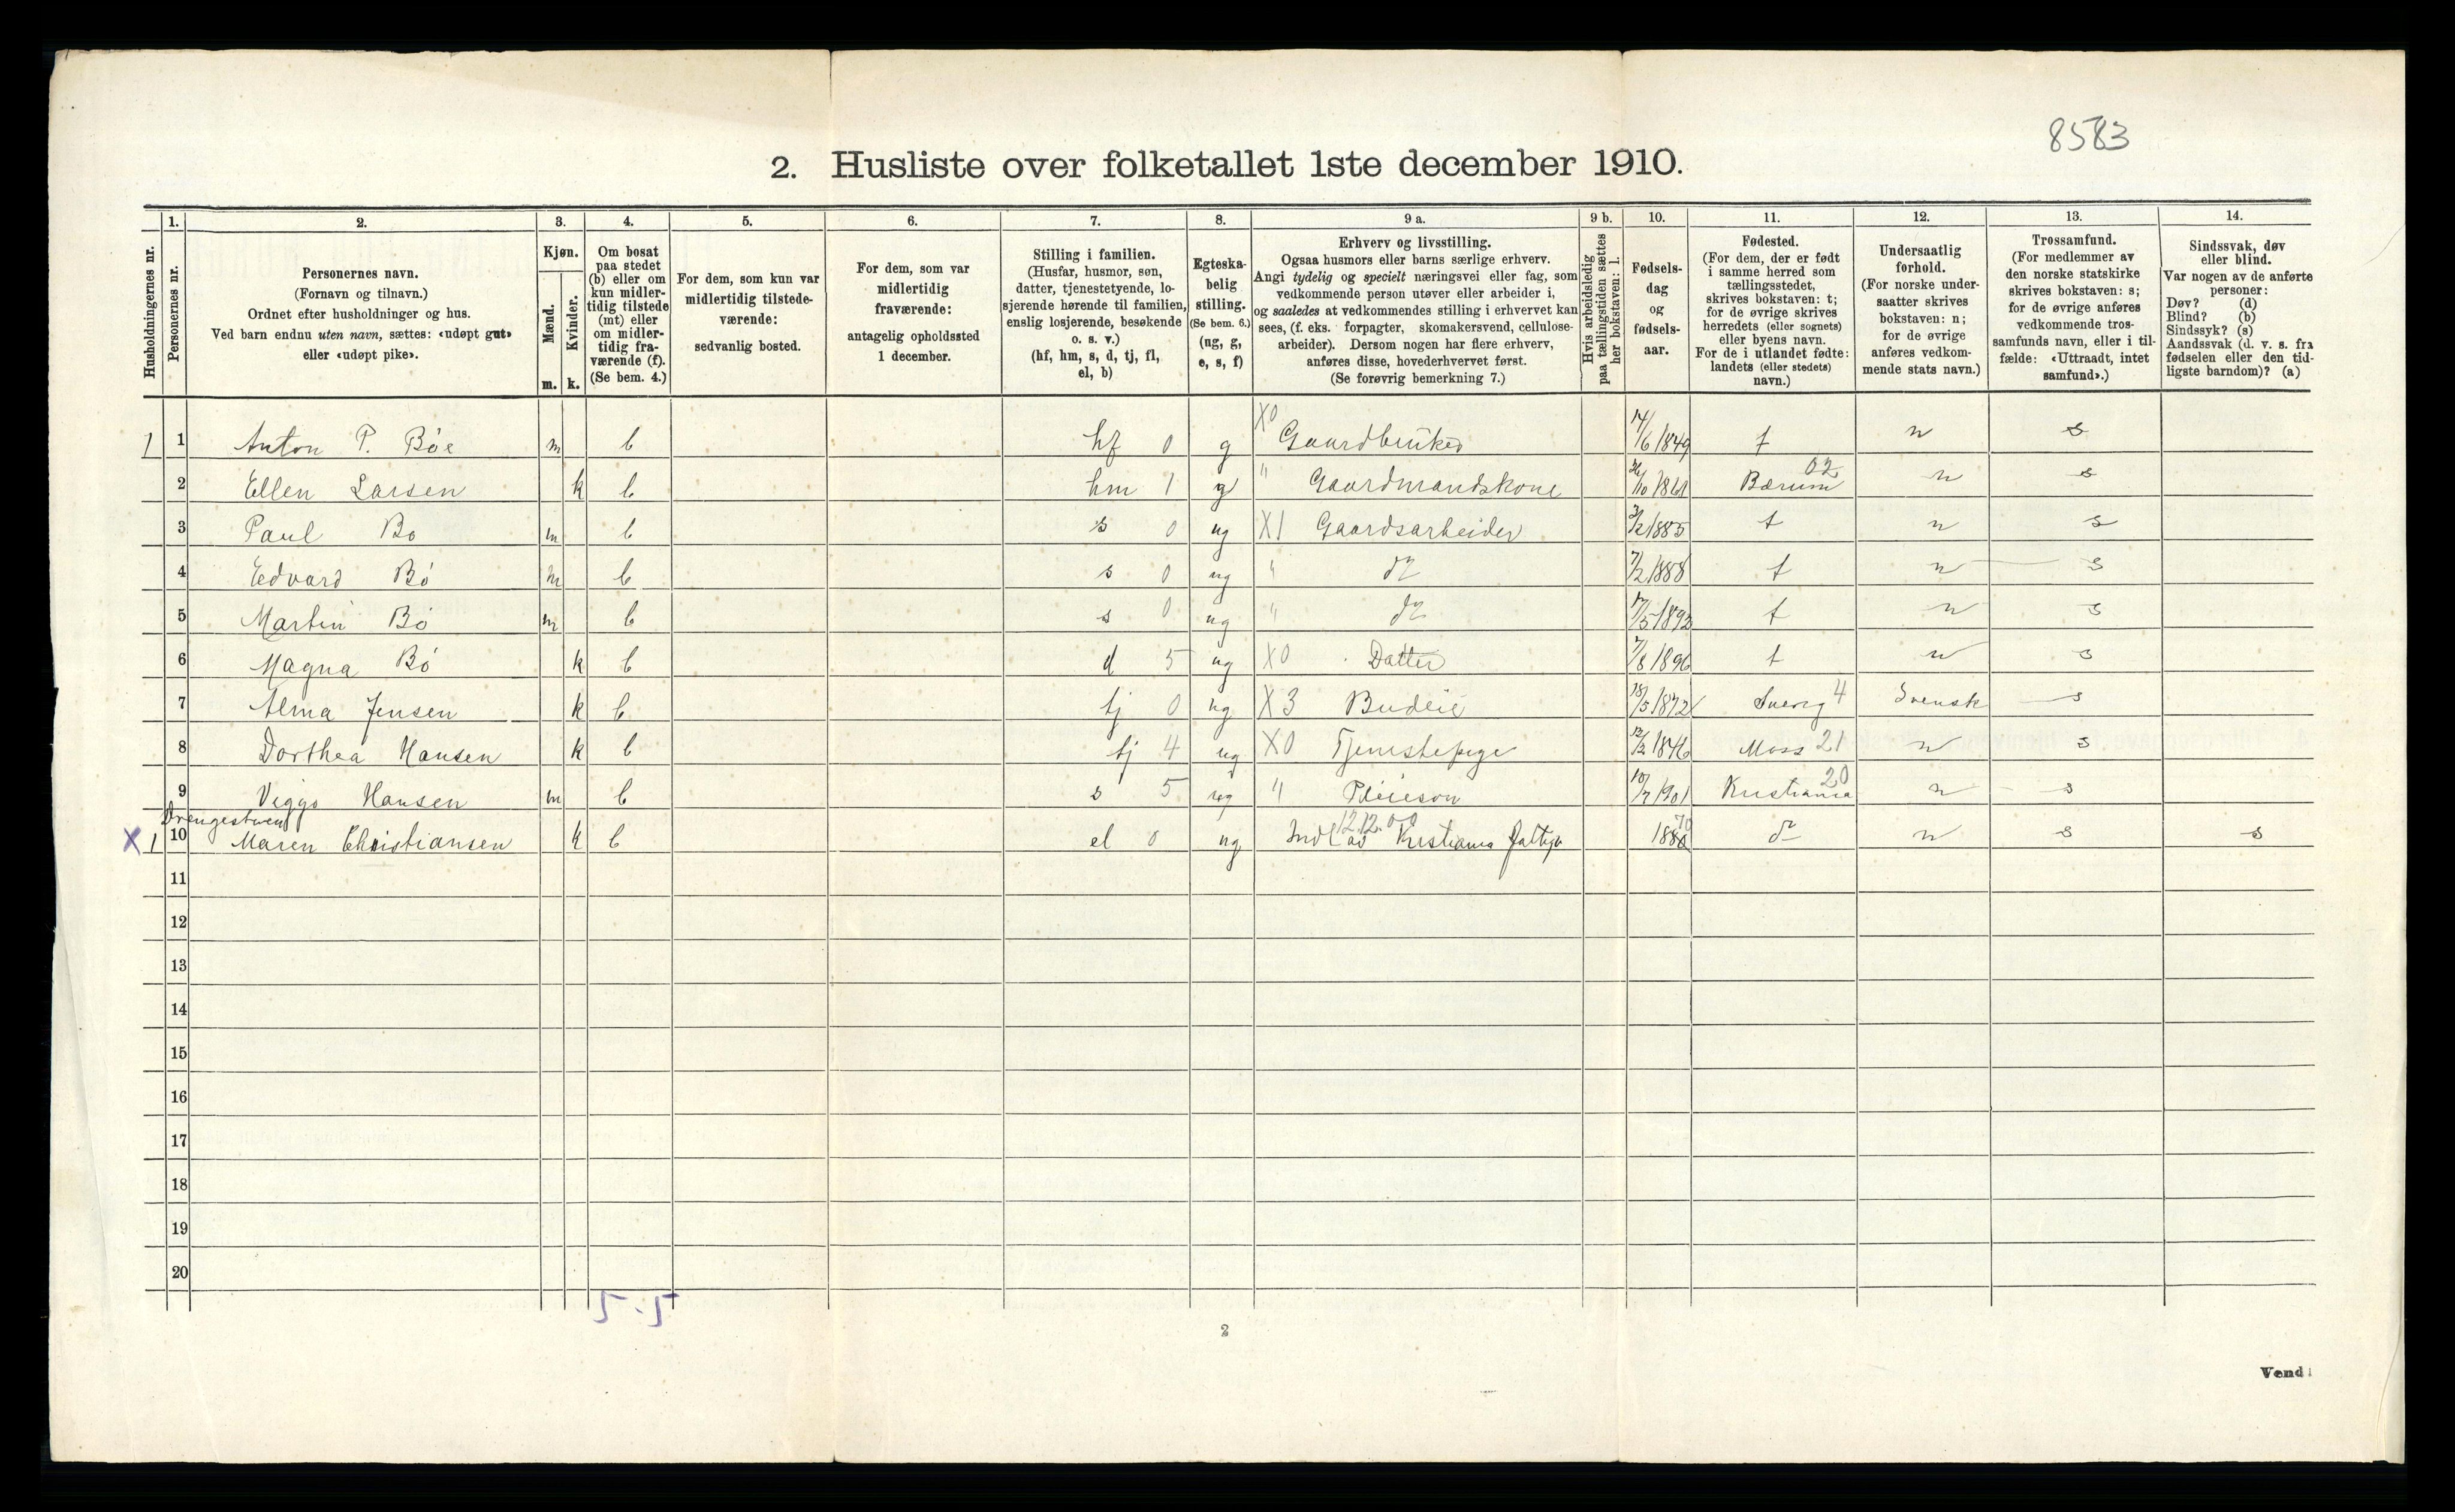 8583
2. Husliste over folketallet 1ste december 1910.
Husholdningernes nr.
1.
Personernes nr.
2.
Personernes navn.
(Fornavn og tilnavn.)
Ordnet efter husholdninger og hus.
Ved barn endnu uten navn, sættes: «udøpt gut»
eller «udøpt pike».
3.
Kjøn.
Mænd.
Kvinder.
m. k.
4.
Om bosat
paa stedet
(b) eller om
kun midler-
tidig tilstede
(mt) eller
om midler-
tidig fra-
værende (f).
(Se bem. 4.)
5.
For dem, som kun var
midlertidig tilstede-
værende:
sedvanlig bosted.
6.
For dem, som var
midlertidig
fraværende:
antagelig opholdssted
1 december.
7.
Stilling i familien.
(Husfar, husmor, søn,
datter, tjenestetyende, lo-
sjerende hørende til familien,
enslig losjerende, besøkende
o. s. v.)
(hf, hm, s, d, tj, fl,
el, b)
8.
Egteska-
belig
stilling.
(Se bem. 6.)
(ug, g,
e, s, f)
9 a.
Erhverv og livsstilling.
Ogsaa husmors eller barns særlige erhverv.
Angi tydelig og specielt næringsvei eller fag, som
vedkommende person utøver eller arbeider i,
og saaledes at vedkommendes stilling i erhvervet kan
sees, (f. eks. forpagter, skomakersvend, cellulose-
arbeider). Dersom nogen har flere erhverv,
anføres disse, hovederhvervet først.
(Se forøvrig bemerkning 7.)
9 b.
Hvis arbeidsledig
paa tællingstiden sættes
her bokstaven: l.
10.
Fødsels-
dag
og
fødsels-
aar.
11.
Fødested.
(For dem, der er født
i samme herred som
tællingsstedet,
skrives bokstaven: t;
for de øvrige skrives
herredets (eller sognets)
eller byens navn.
For de i utlandet fødte:
landets (eller stedets)
navn.)
12.
Undersaatlig
forhold.
(For norske under-
saatter skrives
bokstaven: n;
for de øvrige
anføres vedkom-
mende stats navn.)
13.
Trossamfund.
(For medlemmer av
den norske statskirke
skrives bokstaven: s;
for de øvrige anføres
vedkommende tros-
samfunds navn, eller i til-
fælde: «Uttraadt, intet
samfund».)
14.
Sindssvak, døv
eller blind.
Var nogen av de anførte
personer:
Døv? (d)
Blind? (b)
Sindssyk? (s)
Aandssvak (d. v. s. fra
fødselen eller den tid-
ligste barndom)? (a)
1 1 Anton P. Bøe m b hf 0 g X0 Gaardbruker 14/6 1849 t n s
2 Ellen Larsen k b hm 1 g " Gaardmandskone /10 1861 Bærum 02 n s
3 Paul Bø m b s 0 ug X1 Gaardsarbeider /2 1885 t n s
4 Edvard Bø m b s 0 ug " do 7/2 1888 t n s
5 Martin Bø m b s 0 ug " do 17/5 1892 t n s
6 Magna Bø k b d 5 ug X0 Datter 7/8 1896 t n s
7 Alma Jensen k b tj 0 ug X3 Budeie 18/5 1872 Sverig 4 Svensk s
8 Dorthea Hansen k b tj 4 ug X0 Tjenestepige 12/2 1846 Moss 21 n s
9 Viggo Hansen m b s 5 ug " Pleieson 10/7 1901 Kristiania 20 n s
Drengestuen
X 1 10 Maren Christiansen k b el 0 ug Indl av Kristiania Fattigv 12.12.00 1880 70 do n s s
11
12
13
14
15
16
17
18
19
20
5 · 5
2
Vend!